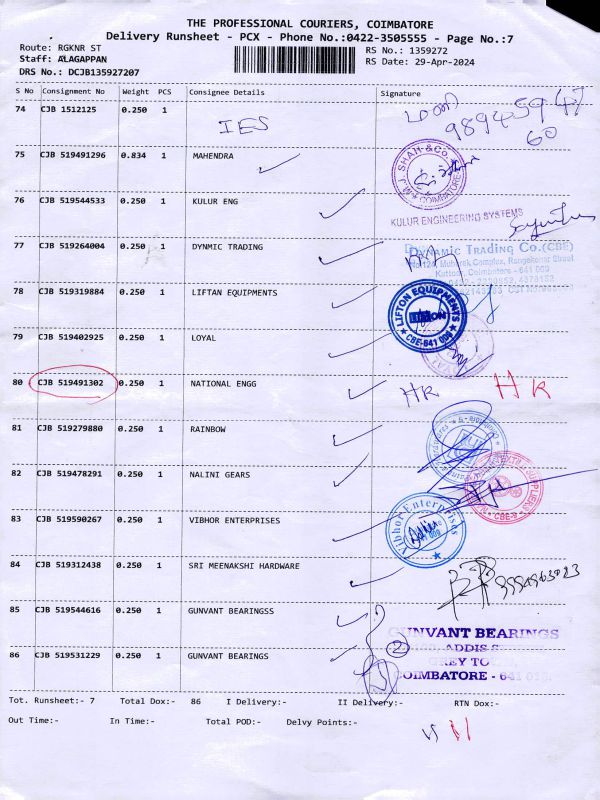 THE PROFESSIONAL COURIERS, COIMBATORE
Delivery Runsheet - PCX - Phone No.:0422-3505555 - Page No.:7
Route: RGKNR ST
RS No.: 1359272
Staff: ALAGAPPAN
RS Date: 29-Apr-2024
DRS No.: DCJB135927207
S No Consignment No Weight PCS Consignee Details Signature
74 CJB 1512125 0.250 1 IES
98945 59 47
60
75 CJB 519491296 0.834 1 MAHENDRA
M.J. SHAH & Co. COIMBATORE
76 CJB 519544533 0.250 1 KULUR ENG
KULUR ENGINEERING SYSTEMS
77 CJB 519264004 0.250 1 DYNMIC TRADING
DYNAMIC TRADING CO.(CBE)
Coimbatore - 641 009
78 CJB 519319884 0.250 1 LIFTAN EQUIPMENTS
LIFTON EQUIPMENTS CBE-641 009
79 CJB 519402925 0.250 1 LOYAL
80 CJB 519491302 0.250 1 NATIONAL ENGG
HK HK
81 CJB 519279880 0.250 1 RAINBOW
82 CJB 519478291 0.250 1 NALINI GEARS
83 CJB 519590267 0.250 1 VIBHOR ENTERPRISES
Vibhor Enterprises
84 CJB 519312438 0.250 1 SRI MEENAKSHI HARDWARE
85 CJB 519544616 0.250 1 GUNVANT BEARINGSS
GUNVANT BEARINGS
86 CJB 519531229 0.250 1 GUNVANT BEARINGS
2
COIMBATORE - 641
Tot. Runsheet:- 7 Total Dox:- 86 I Delivery:- II Delivery:- RTN Dox:-
Out Time:- In Time:- Total POD:- Delvy Points:-